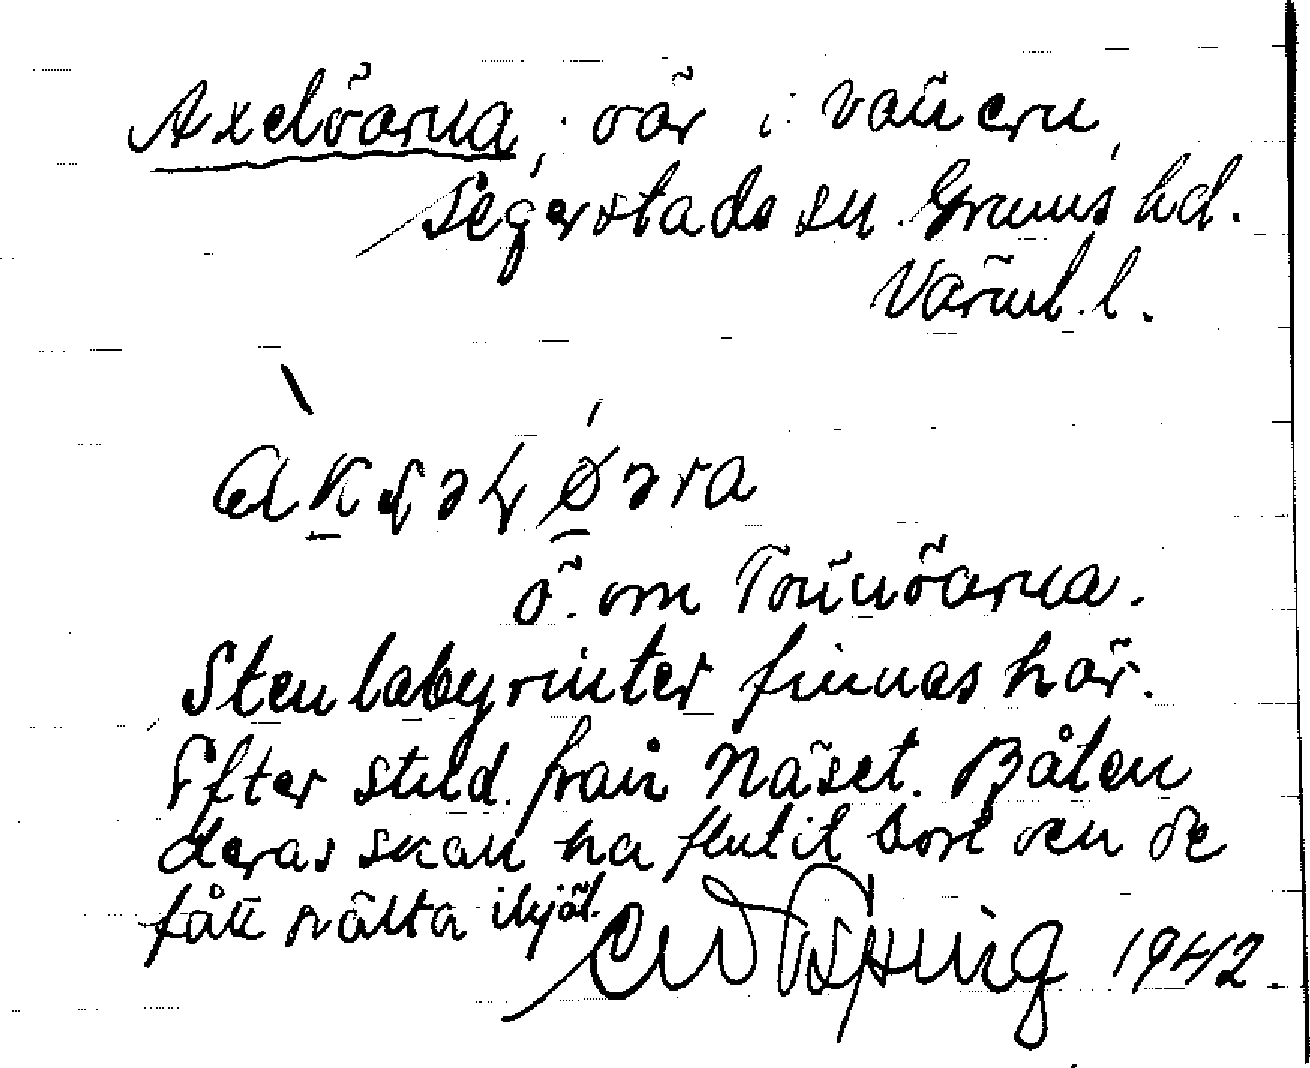 Axelöarna, öar i Vänern,
Segerstads sn. Grums hd.
Värml. l.
ö. om Tönnöarna.
Stenlabyrinter finnas här.
Efter stild. från Näset. Båten
deras skall ha flutit bort och de
fått svälta ihjäl.
1942.